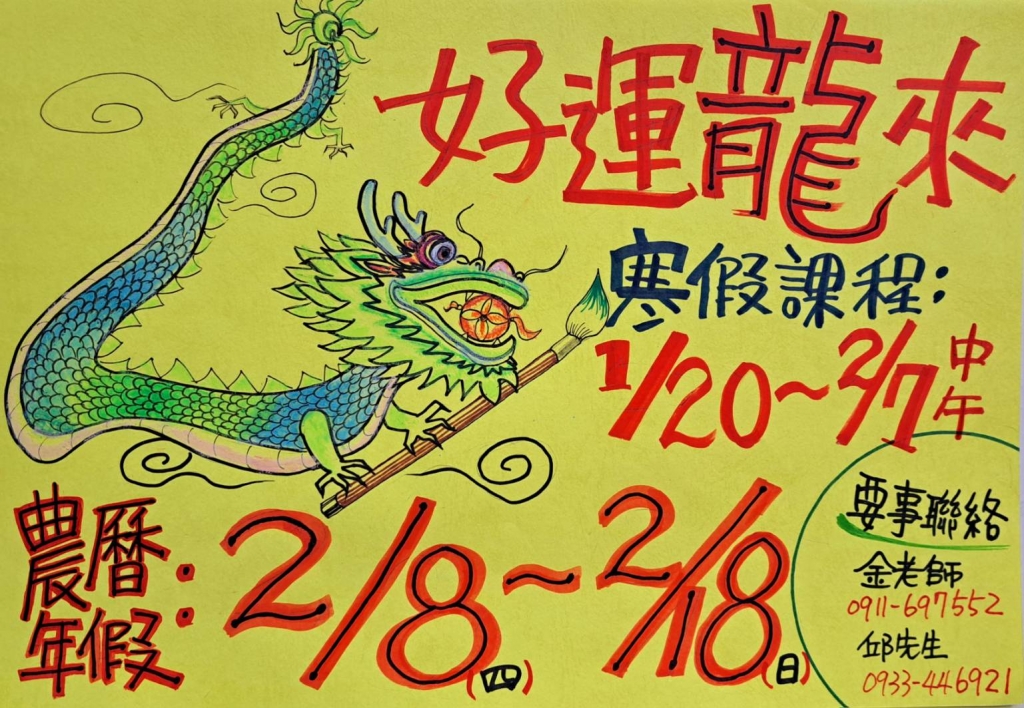 好運龍來
寒假課程:
1/20~2/7中午
農曆年假:
2/8(四)~2/18(日)
要事聯絡
金老師
0911-697552
邱先生
0933-446921